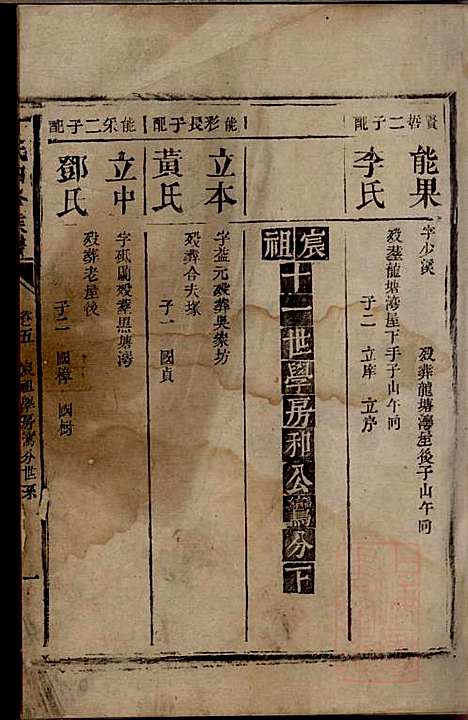 賢哲二子配
能果
字少溪 殁葬龍塘灣屋後子山午向
李氏
殁葬龍塘灣屋下手子山午向
子二 立庠 立序
宸祖
十一世學房和公鸞分下
能彩長子配
立本
字益元殁葬吳家坊
黃氏
殁葬合夫塚
子一 國貞
能采二子配
立中
字砥蘭殁葬黑塘灣
鄧氏
殁葬老屋後
子二 國樟 國樹
卷五 宸祖學房鸞分世系
一